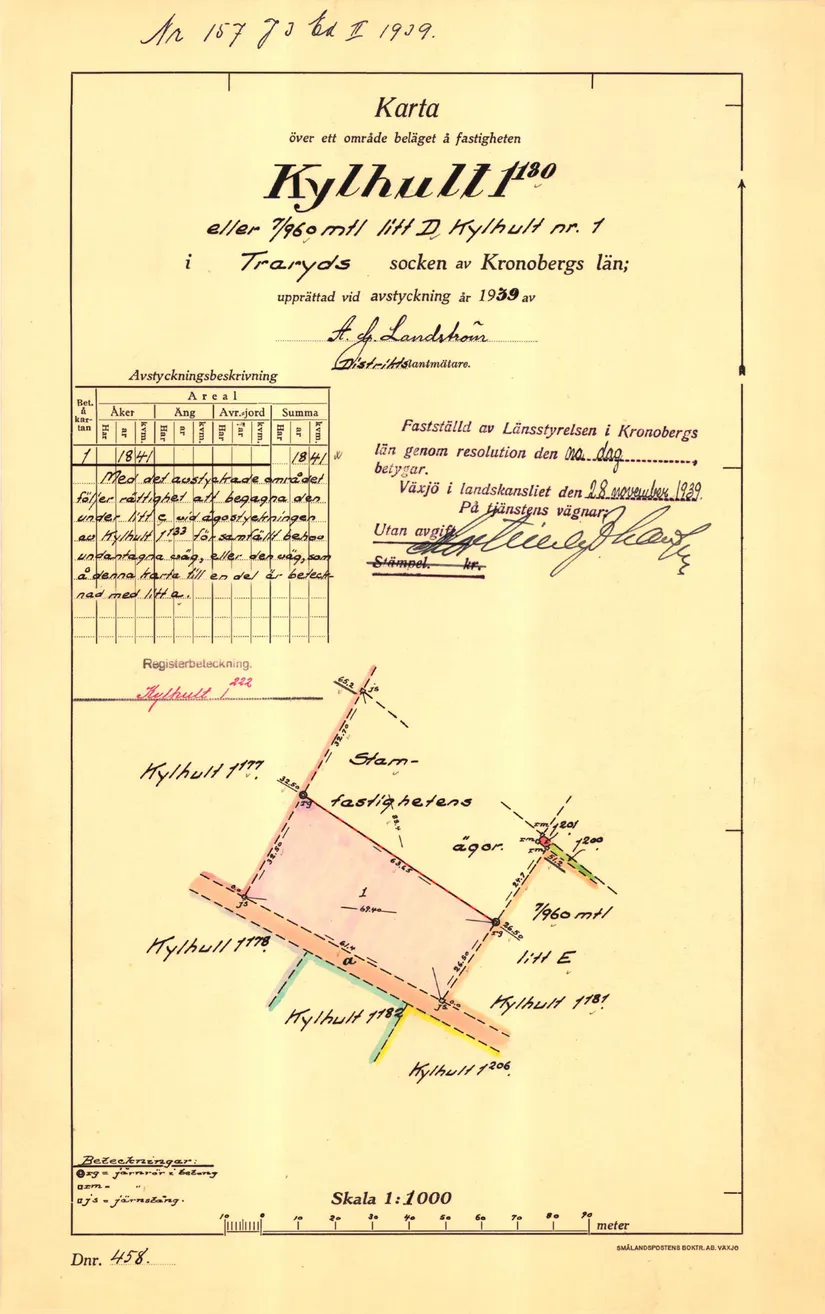 Nr 157 J3 Ed II 1939.
Karta
över ett område beläget å fastigheten
Kylhult 1¹⁸⁰
eller 7/960 mtl litt D, Kylhult nr. 1
i Traryds socken av Kronobergs län;
upprättad vid avstyckning år 1939 av
A. G. Landström
Distriktslantmätare.
Avstyckningsbeskrivning
Bet. å kartan
Areal
Åker Äng Avr.-jord Summa
Har ar kvm. Har ar kvm. Har ar kvm. Har ar kvm.
1 18 41 18 41
Med det avstyckade området
följer rättighet att begagna den
under litt c vid ägostyckningen
av Kylhult 1¹³³ för samfällt behov
undantagna väg, eller den väg, som
å denna karta till en del är beteck-
nad med litt a.
Fastställd av Länsstyrelsen i Kronobergs
län genom resolution denna dag,
betygar.
Växjö i landskansliet den 28 november 1939.
På tjänstens vägnar:
Utan avgift
Stämpel. kr.
Registerbeteckning.
Kylhult 1²²²
65.2 js
32.70
Kylhult 1¹⁷⁷.
Stam-
32.50
rg
fastighetens
22.4
ägor.
rm 1²⁰¹
rm
rm
1²⁰⁰
51.2
32.50
63.65
24.7
0.0
js
1
69.40
7/960 mtl
26.50
rg
litt E
Kylhult 1¹⁷⁸.
61.4
a
26.50
js 0.0
Kylhult 1¹⁸¹
Kylhult 1¹⁸²
Kylhult 1²⁰⁶.
Beteckningar:
rg = järnrör i betong
rm = "
js = järnstång.
Skala 1:1000
10 0 10 20 30 40 50 60 70 80 90
meter
Dnr. 458.
SMÅLANDSPOSTENS BOKTR. AB. VÄXJÖ